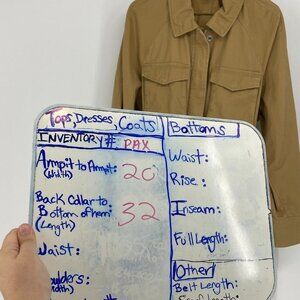 Tops, Dresses, Coats
INVENTORY # PAX
Armpit to Armpit: 20
(Width)
Back Collar to
Bottom of hem: 32
(Length)
Waist:
oulders:
idth)
Bottoms
Waist:
Rise:
Inseam:
Full Length:
Other
Belt Length: